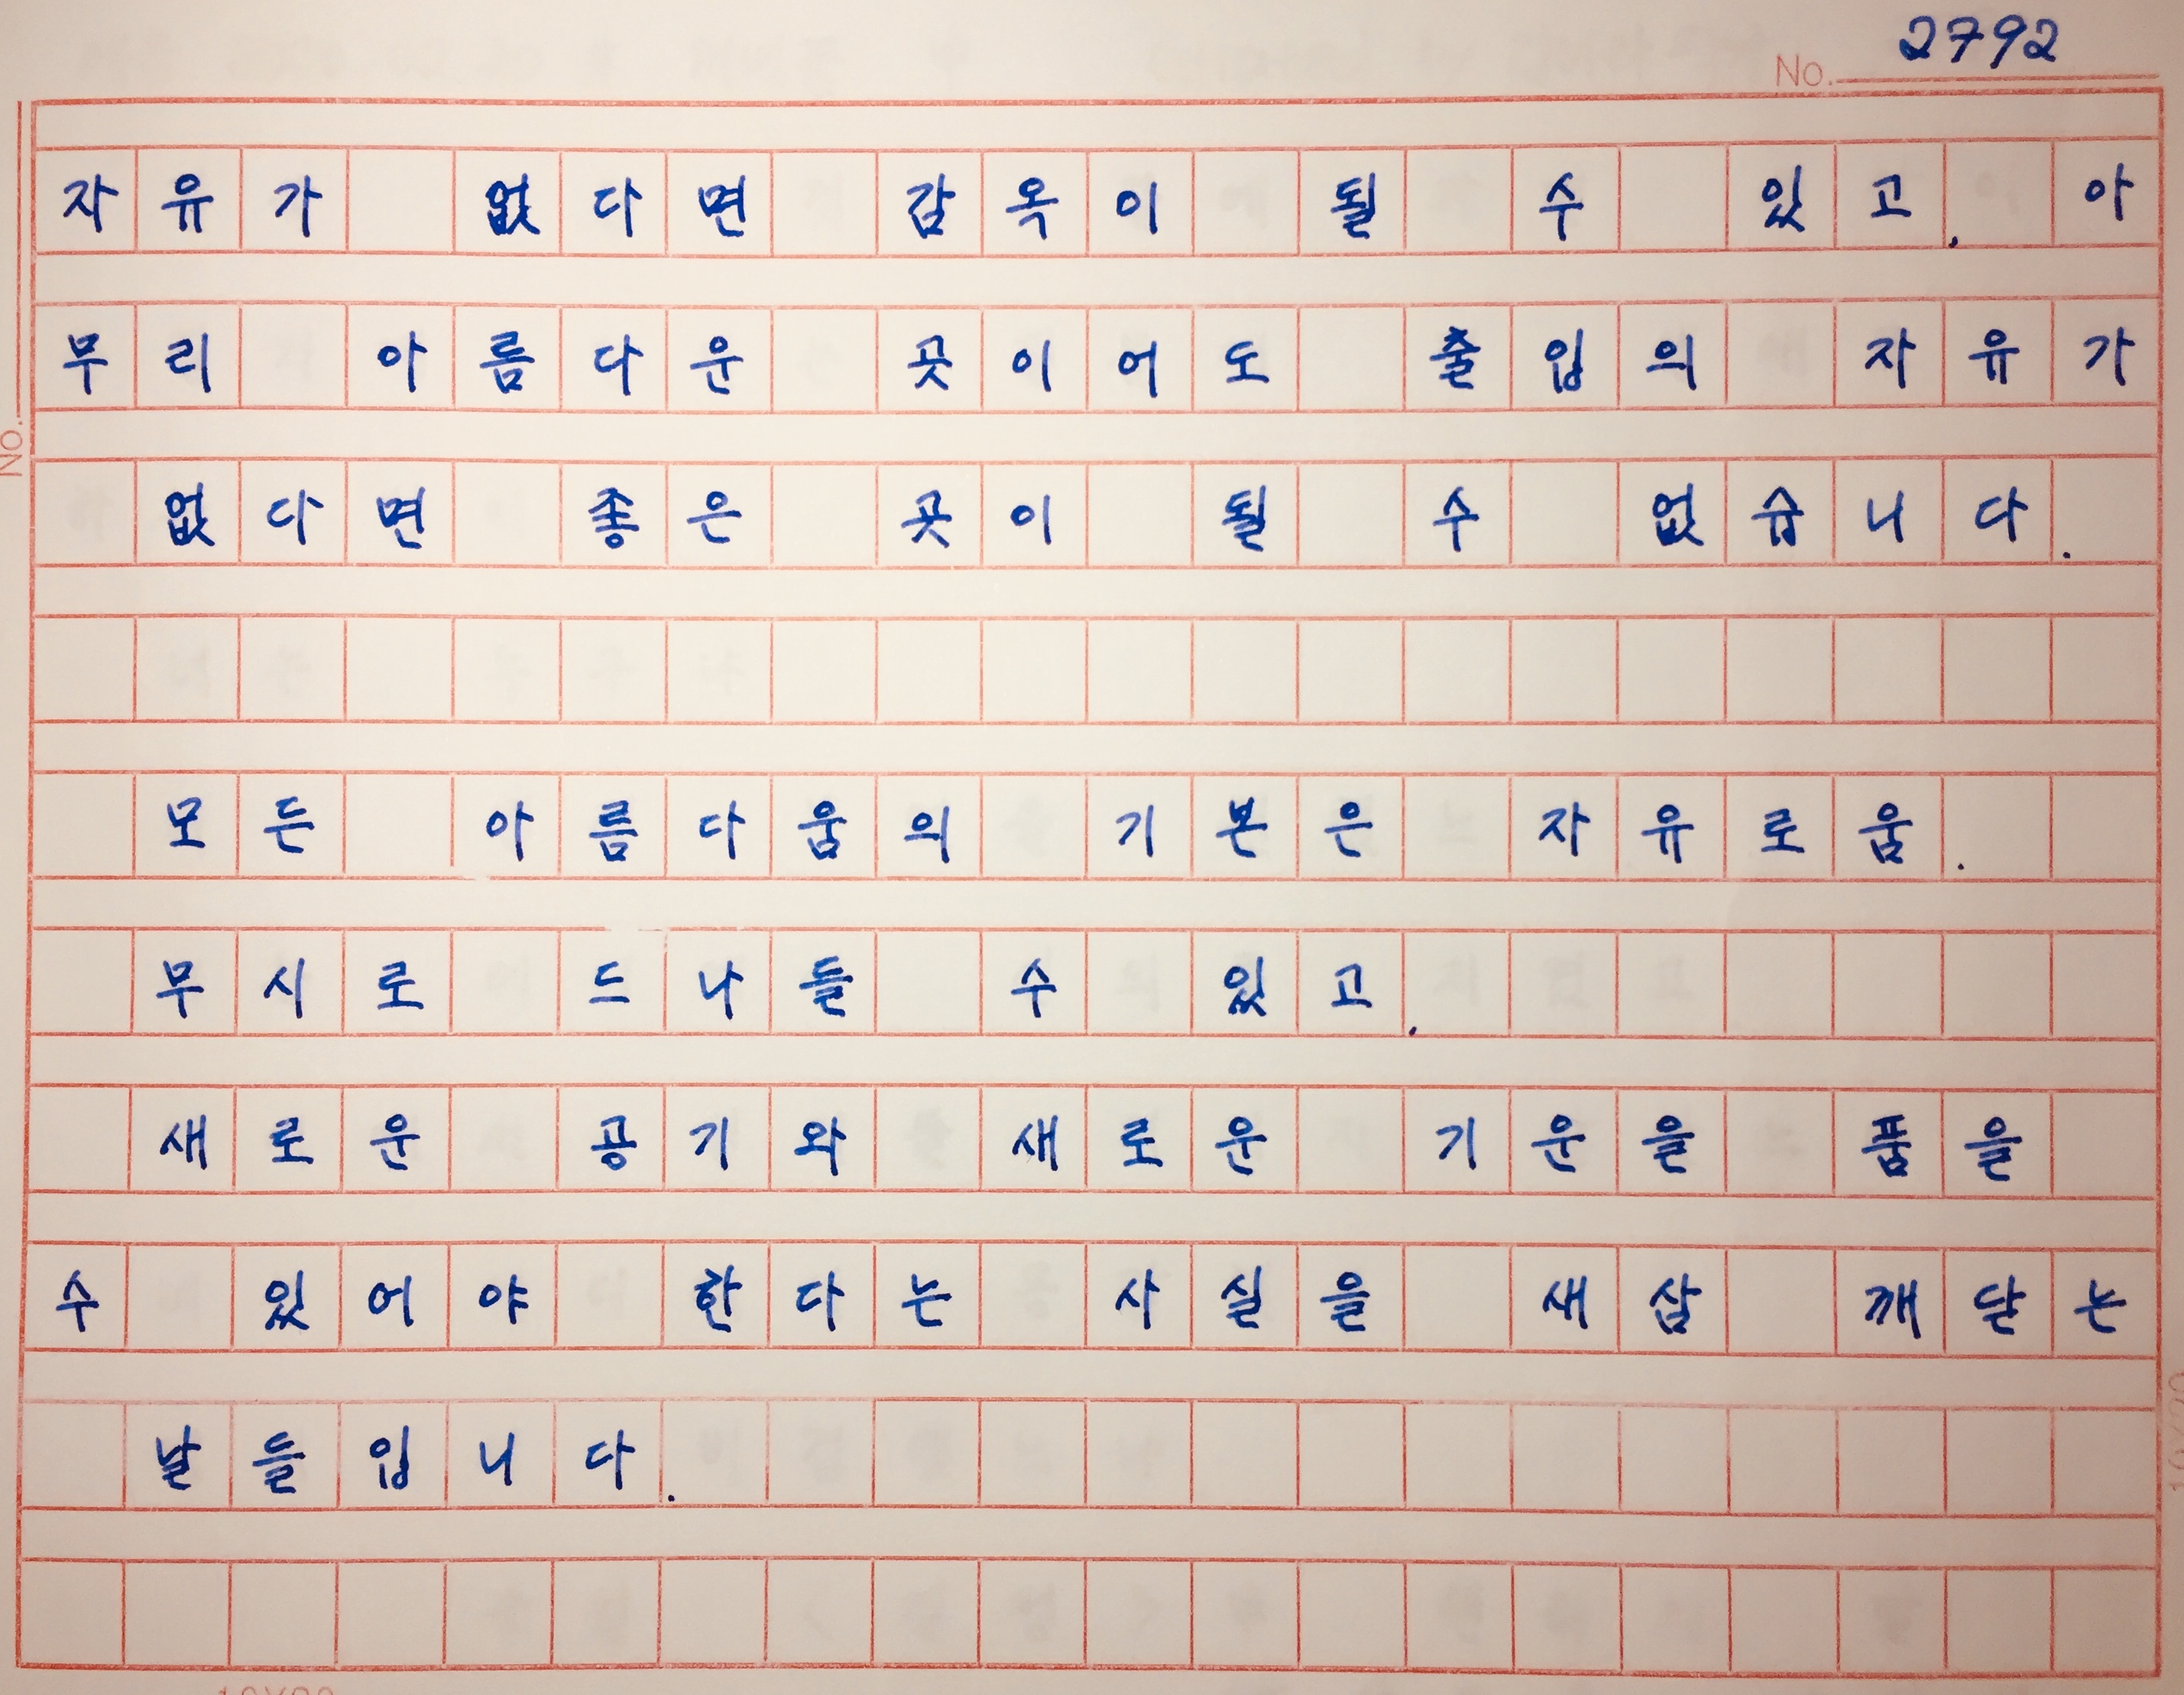 No. 2792
자유가 없다면 감옥이 될 수 있고, 아
무리 아름다운 곳이어도 출입의 자유가
없다면 좋은 곳이 될 수 없습니다.
모든 아름다움의 기본은 자유로움.
무시로 드나들 수 있고,
새로운 공기와 새로운 기운을 품을
수 있어야 한다는 사실을 새삼 깨닫는
날들입니다.
No.